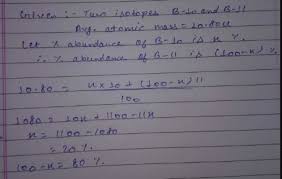 Given :- Two isotopes B-10 and B-11
Avg. atomic mass = 10.80u
Let % abundance of B-10 is x %.
∴ % abundance of B-11 is (100-x) %
10.80 = x×10 + (100-x) 11
100
1080 = 10x + 1100 - 11x
x = 1100 - 1080
= 20 %.
100-x = 80 %.